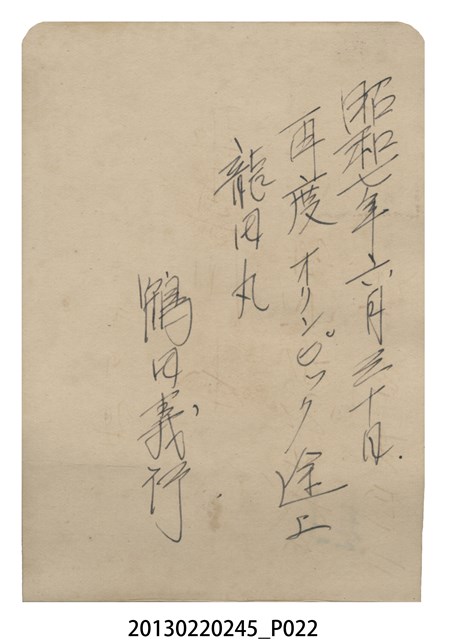 昭和七年六月三十日.
再度オリンピック途上
龍田丸
鶴田義行.
20130220245_P022